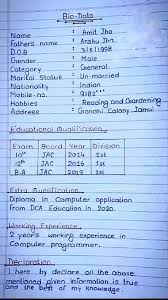 Bio-Data
Name : Amit Jha
Fathers name : Anshu Jha
D.O.B : 3/5/1998
Gender : Male
Category : General
Marital Status : Un-married
Nationality : Indian
Mobile no. : 9182***
Hobbies : Reading and Giardening
Address : Giandhi Colony, Jamui
Educational Qualification
Exam Board Year Division
10th JAC 2014 1st
12th JAC 2016 1st
B.A JAC 2019 1st
Extra Qualification
Diploma in Computer application
from DCA Education in 2020.
Working Experience
2 year's working experience in
Computer programmer.
Declaration
I here by declare all the above
mentioned given information is true
and the best of my knowledge.